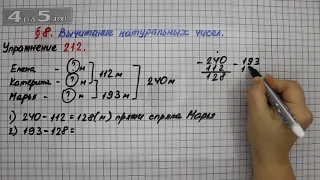 4apo5.ru
§8. Вычитание натуральных чисел.
Упражнение 212.
Елена - ? м
Катерина - ? м
Марья - ? м
112 м
193 м
240 м
- 240
112
128
- 193
1
1) 240 - 112 = 128 (м) пряжи спряла Марья
2) 193 - 128 =